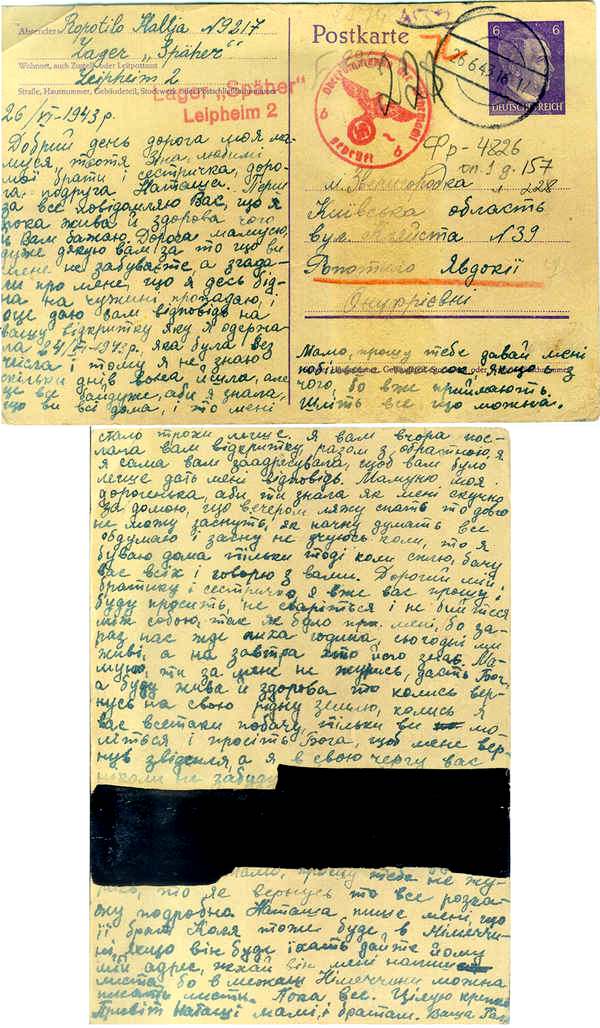 Absender Ropotilo Hallja N9217
Lager „Späher"
Wohnort, auch Zustell- oder Leitpostamt
Leipheim 2
Straße, Hausnummer, Gebäudeteil, Stockwerk oder Postschließfachnummer
Lager „Späher"
Leipheim 2
26/VI-1943 р.
Добрий день дорога моя ма-
муся тьотя Зіна, любимі
мої брати і сестричка, доро-
га подруга Наташа. Перш
за все повідомляю Вас, що я
пока жива й здорова чого
й Вам бажаю. Дорога мамусю,
дуже дякую вам за то що ви
мене не забуваєте, а згада-
ли про мене, що я десь бід-
на на чужині пропадаю, і
оце даю вам відповідь на
вашу відкритку яку я одержа-
ла 24/VI-1943р., яка була без
числа і тому я не знаю
скільки днів вона йшла, але
це все байдуже, аби я знала,
що ви всі дома, і то мені
Postkarte
6 6
DEUTSCHES REICH
25.6.43.16
Oberkommando der Wehrmacht
geprüft
228
Фр-4226
оп.1 д.157
л 228
м. Звенигородка
Київська область
вул. N 39
Ропотило Явдокії
Онуфрієвні
Мамо, прошу тебе давай мені
якщо з
чого, бо вже приймають.
Шліть все що можна.
стало трохи легше. Я вам вчора пос-
лала вам відкритку разом з обратною, я
я сама вам заадресувала, щоб вам було
легше дать мені відповідь. Мамуню моя
дорогенька, аби ти знала як мені скучно
за домою, що вечером ляжу спать то довго
не можу заснуть, як начну думать все
обдумаю і засну не чуюсь коли, то я
буваю дома тільки тоді коли сплю, бачу
вас всіх і говорю з вами. Дорогий мій
братику і сестричко, я вже вас прошу і
буду просить, не сваріться і не бийтеся
між собою, так як було при мені, бо за-
раз нас жде лиха година сьогодні ми
живі, а на завтра хто його знає. Ма-
муню, ти за мене не журись, дасть Бог,
а буду жива й здорова то колись вер-
нусь на свою рідну землю, колись я
вас всетаки побачу, тільки ви мо-
літься і просіть Бога, щоб мене вер-
нув звідсиля, а я в свою чергу вас
ніколи не забуду
Мамо, прошу тебе не жу-
рись, то як вернусь то все розка-
жу подробна. Наташа пише мені, що
її брат Коля тоже буде в Німеччи-
ні, якщо він буде їхать дайте йому
мій адрес, нехай він мені напише
листа бо в межах Німеччини можна
писать листи. Пока, все. Цілую крепко
Привіт Наташі мамі і братам. Ваша Галя